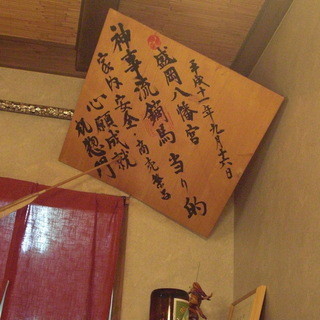 平成十一年九月十六日
盛岡八幡宮 当り的
神事流鏑馬
家内安全・商売繁昌
心願成就
祝惣門